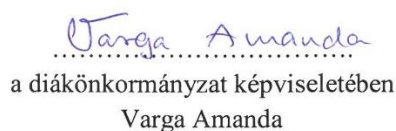 Varga Amanda
a diákönkormányzat képviseletében
Varga Amanda